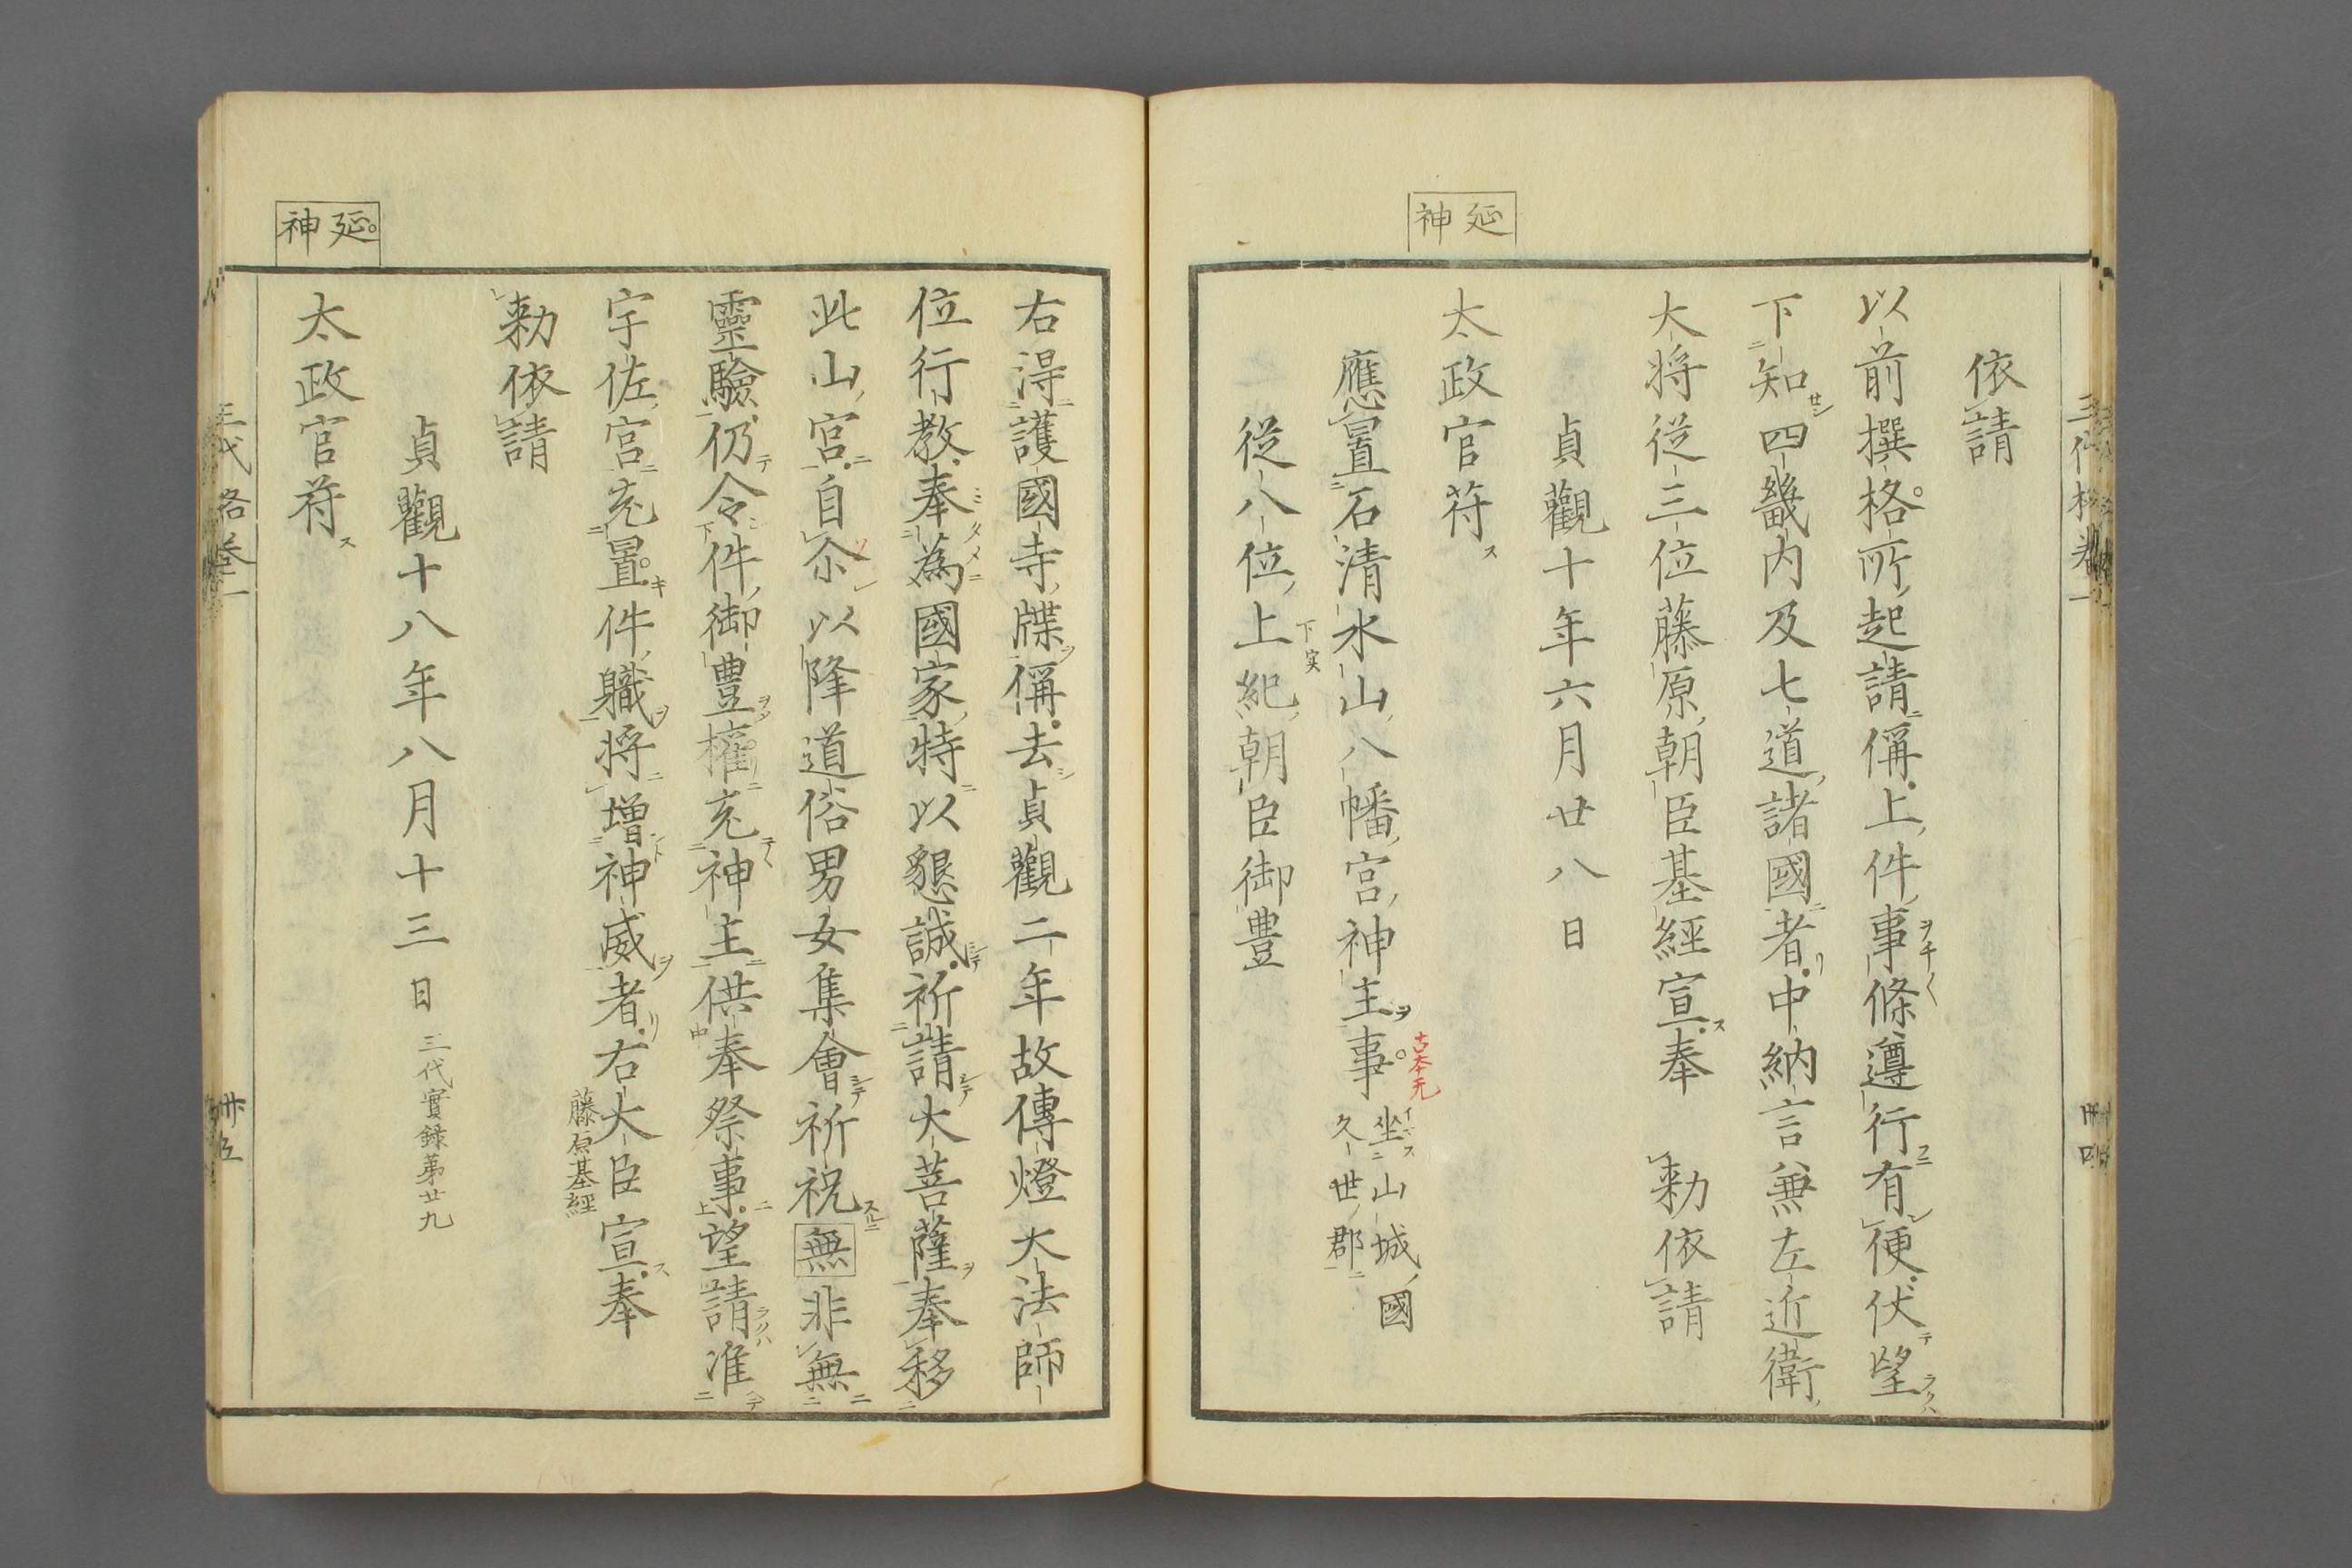 三代格卷一
依請
以前撰格所起請偁上件事條遵行有便伏望
下知四畿内及七道諸國者中納言兼左近衛
大将従三位藤原朝臣基經宣奉　勅依請
貞觀十年六月廿八日
延神
太政官符
應置石清水山八幡宮神主事
古本无
坐山城國
久世郡
従八位上紀朝臣御豊
下実
右得護國寺牒偁去貞觀二年故傳燈大法師
位行教奉為國家特以懇誠祈請大菩薩奉移
此山宮自尒以降道俗男女集會祈祝無非無
靈驗仍令件御豊權充神主供奉祭事望請准
宇佐宮充置件職将增神威者右大臣宣奉
藤原基經
勅依請
貞觀十八年八月十三日 三代實録第廿九
延神
太政官符
三代格卷一
卅五